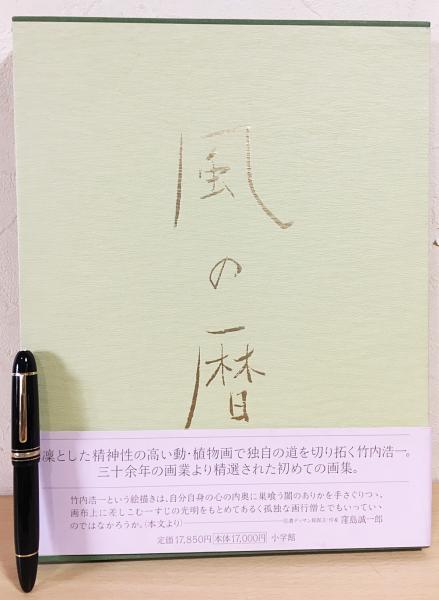 風の暦
凜とした精神性の高い動・植物画で独自の道を切り拓く竹内浩一。
三十余年の画業より精選された初めての画集。
竹内浩一という絵描きは、自分自身の心の内奥に巣喰う闇のありかを手さぐりつゝ、
画布上に差しこむ一すじの光明をもとめてあるく孤独な画行僧とでもいってい、
のではなかろうか。(本文より) 信濃デッサン館館主・作家 窪島誠一郎
定価17,850円 本体17,000円 小学館